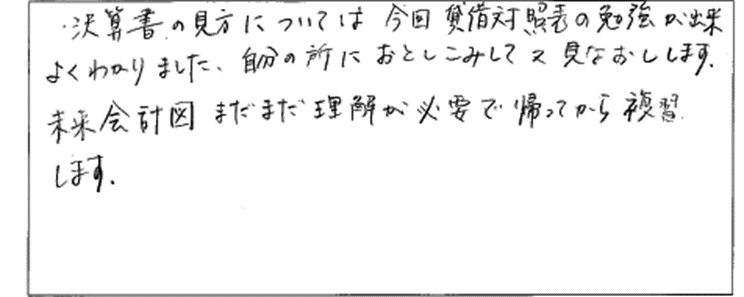 ・決算書の見方については今回貸借対照表の勉強が出来
よくわかりました、自分の所におとしこみして又見なおしします。
未来会計図まだまだ理解が必要で帰ってから複習
します。